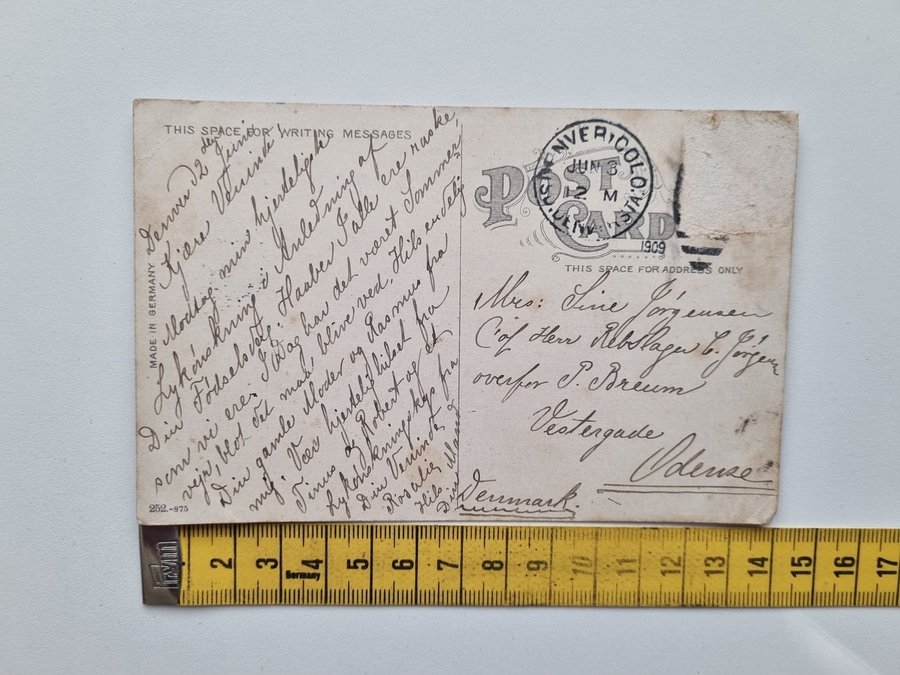 THIS SPACE FOR WRITING MESSAGES
MADE IN GERMANY
Denver d 2 den Juni
Kjære Veninde!
Modtag min hjerteligste
Lykønskning i Anledning af
Din Fødselsdag. Haaber I alle ere raske,
som vi ere. I Dag har det været Sommer-
vejr, blot det maa blive ved. Hils endelig
Din gamle Moder og Rasmus fra
mig. Vær hjerteligt hilset fra
Tinus og Robert og et
Lykønskningskys fra
Din Veninde,
Rosalie.
Hils
Din
252.-875
POST CARD
DENVER, COLO.
JUN 3
12 M
1909
THIS SPACE FOR ADDRESS ONLY
Mrs: Sine Jørgensen
C/of Herr Rebslager C. Jørgen
overfor P. Breum
Vestergade
Odense
Denmark.
2 3 4 5 6 7 8 9 10 11 12 13 14 15 16 17
Germany